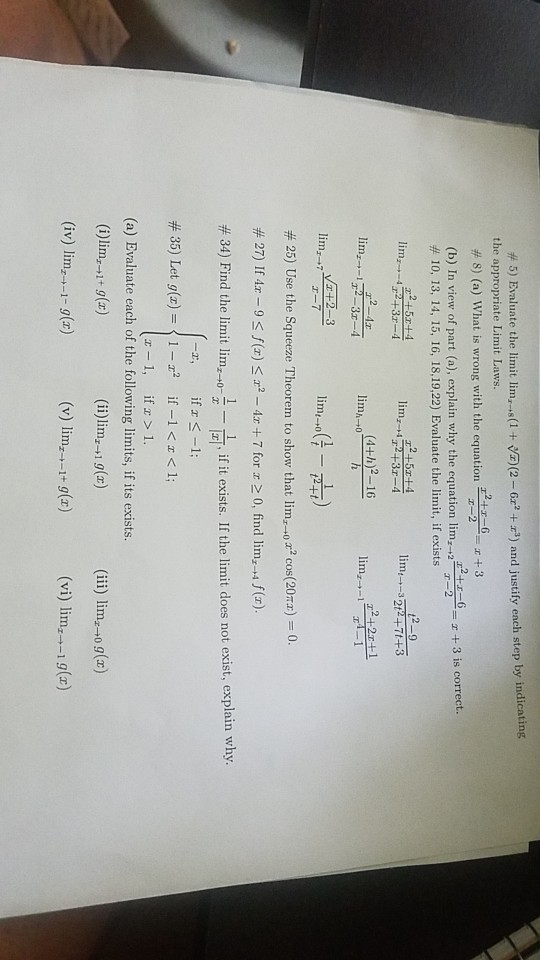 # 5) Evaluate the limit lim_{x→8}(1 + ∛x)(2 − 6x² + x³) and justify each step by indicating
the appropriate Limit Laws.
# 8) (a) What is wrong with the equation (x²+x−6)/(x−2) = x + 3
(b) In view of part (a), explain why the equation lim_{x→2} (x²+x−6)/(x−2) = x + 3 is correct.
# 10, 13, 14, 15, 16, 18,19,22) Evaluate the limit, if exists
lim_{x→−4} (x²+5x+4)/(x²+3x−4) lim_{x→4} (x²+5x+4)/(x²+3x−4) lim_{t→−3} (t²−9)/(2t²+7t+3)
lim_{x→−1} (x²−4x)/(x²−3x−4) lim_{h→0} ((4+h)²−16)/h lim_{x→−1} (x²+2x+1)/(x⁴−1)
lim_{x→7} (√(x+2)−3)/(x−7) lim_{t→0} (1/t − 1/(t²+t))
# 25) Use the Squeeze Theorem to show that lim_{x→0} x² cos(20πx) = 0.
# 27) If 4x − 9 ≤ f(x) ≤ x² − 4x + 7 for x ≥ 0, find lim_{x→4} f(x).
# 34) Find the limit lim_{x→0⁻} 1/x − 1/|x|, if it exists. If the limit does not exist, explain why.
# 35) Let g(x) = { −x, if x ≤ −1;
1 − x² if −1 < x < 1;
x − 1, if x > 1.
(a) Evaluate each of the following limits, if its exists.
(i)lim_{x→1⁺} g(x) (ii)lim_{x→1} g(x) (iii) lim_{x→0} g(x)
(iv) lim_{x→−1⁻} g(x) (v) lim_{x→−1⁺} g(x) (vi) lim_{x→−1} g(x)